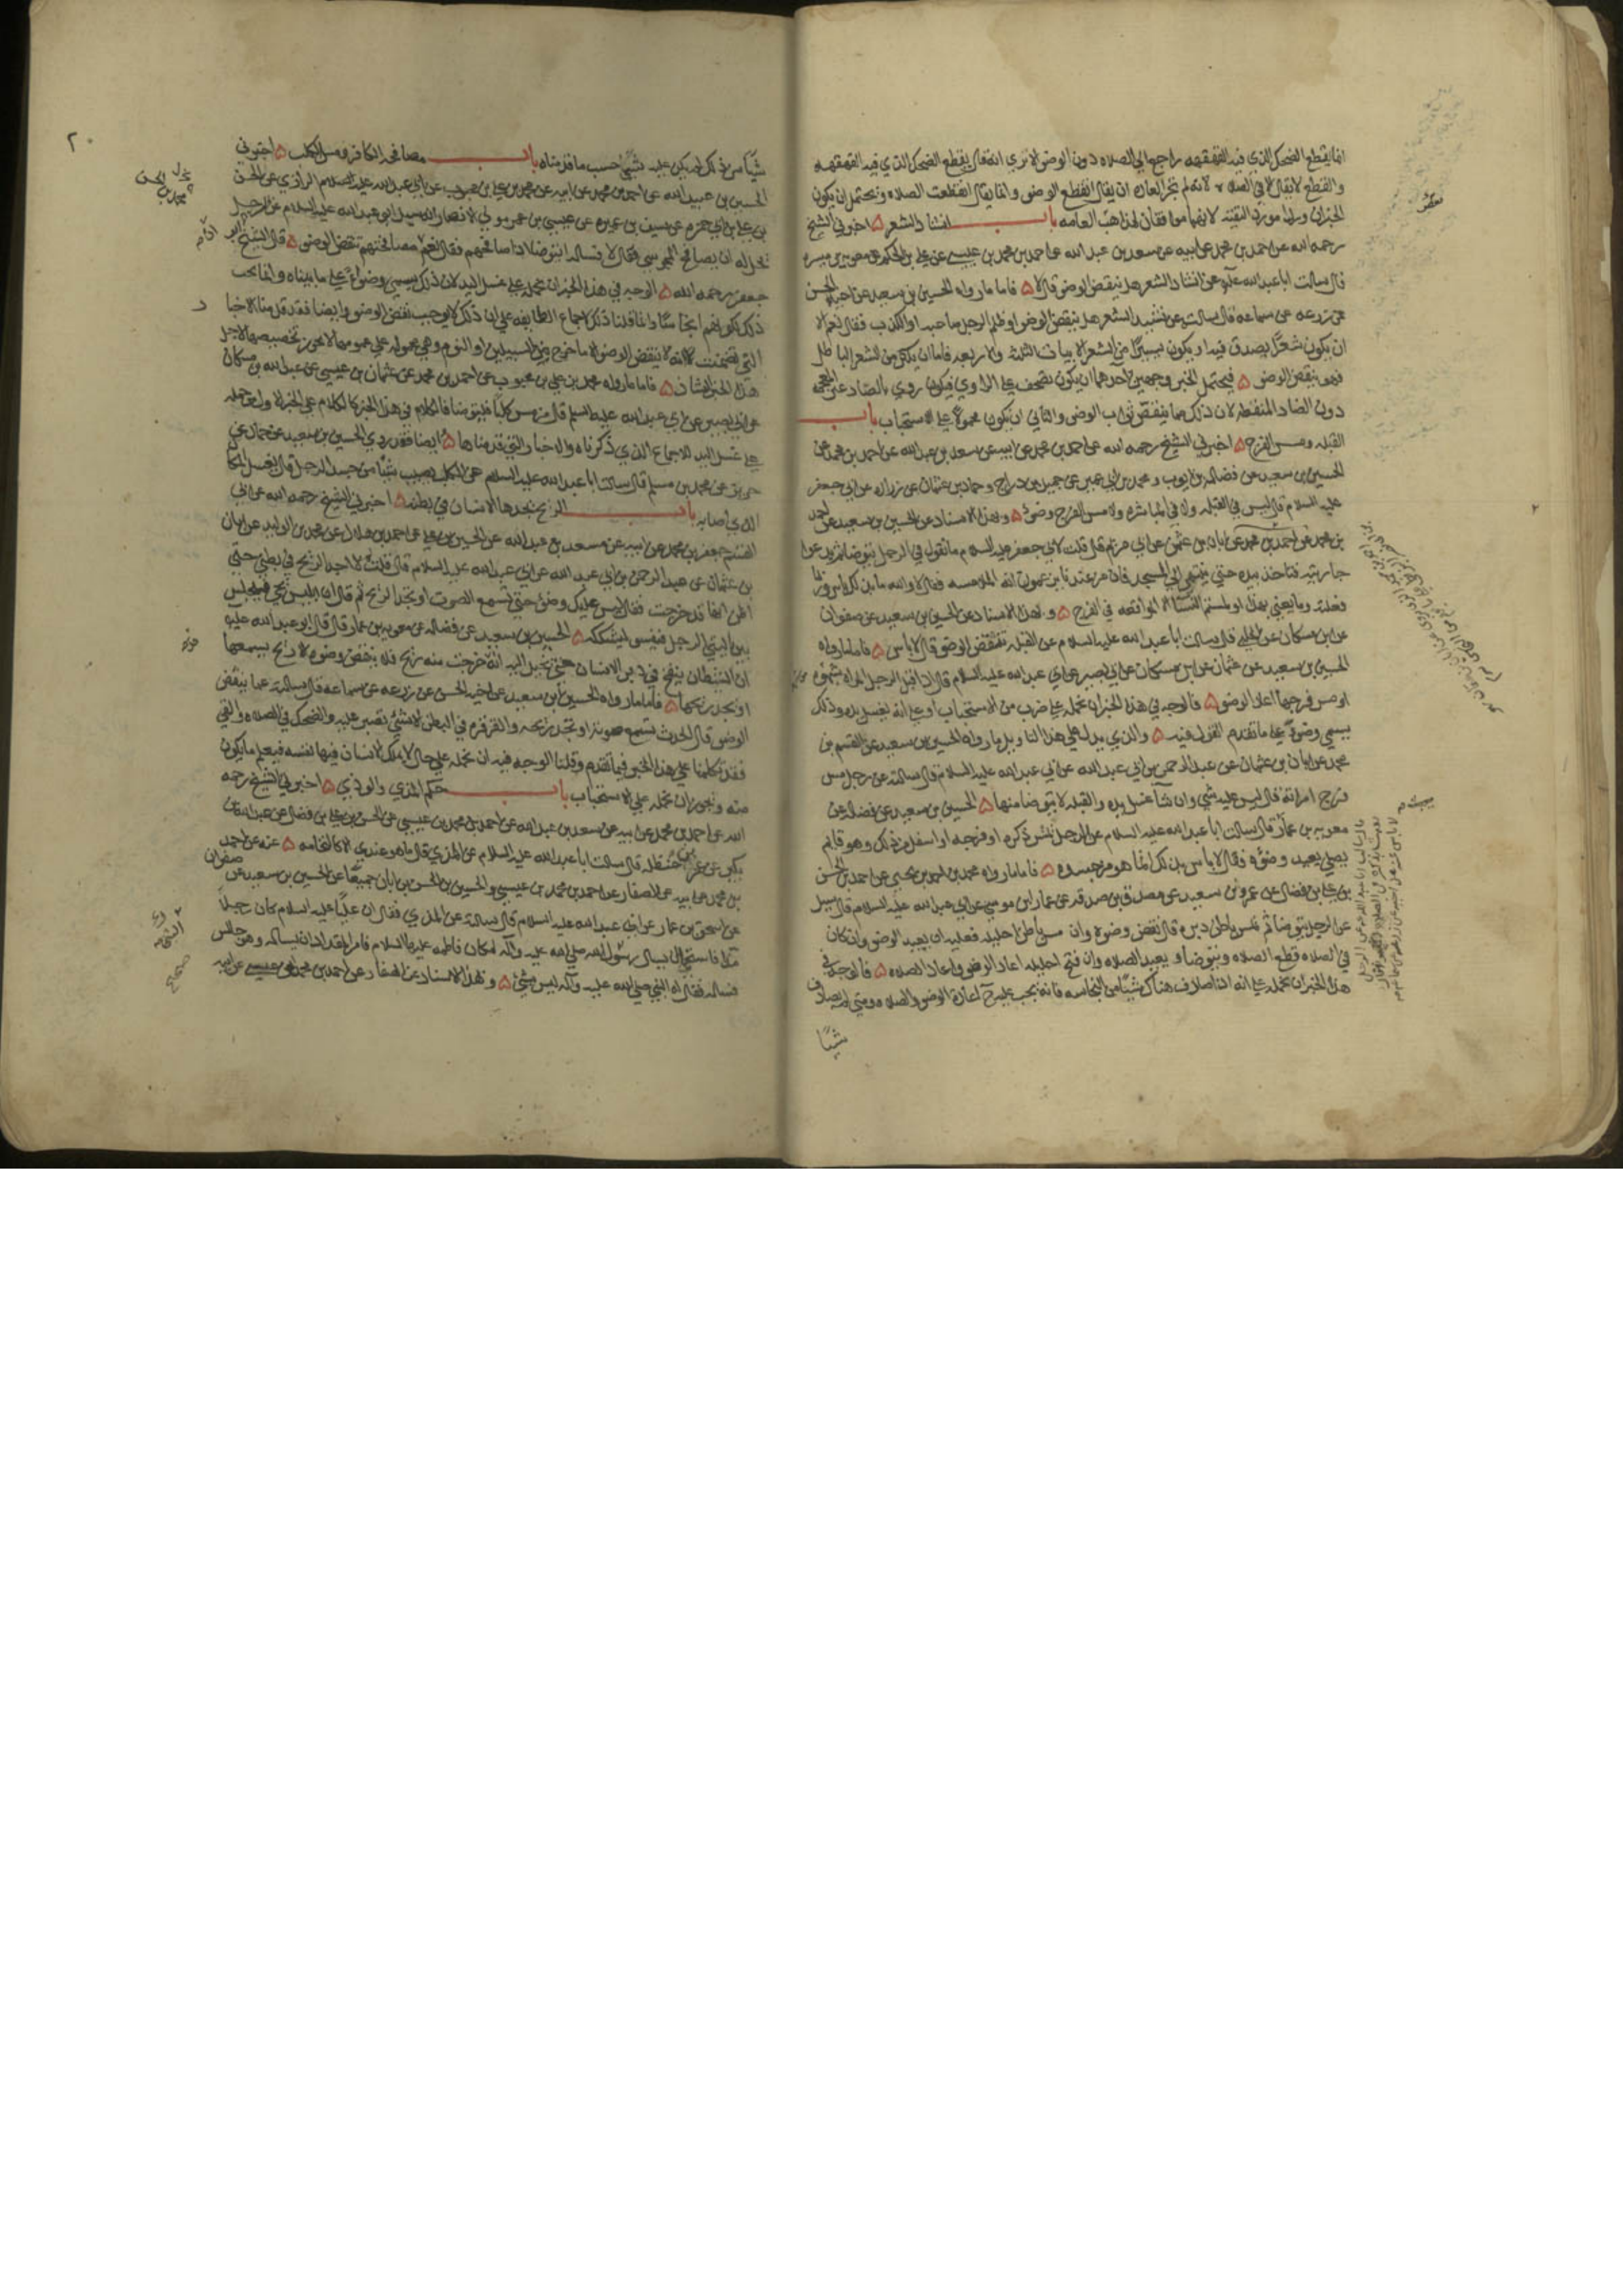 انما يقطع الضحك الذي فيه القهقهه راجع الي الصلاه دون الوضو الا تري انه قال يقطع الضحك الذي فيه القهقهه
والقطع لا يقال الا في الصلاه لانه لم تجر العاده ان يقال انقطع الوضو وانما يقال انقطعت الصلاه ويحتمل ان يكون
الخبران وردا مورد التقيه لانهما موافقان لمذاهب العامه باب انشاد الشعر ۵ اخبرني الشيخ
رحمه الله عن احمد بن محمد عن ابيه عن سعد بن عبد الله عن احمد بن محمد بن عيسي عن علي بن الحكم عن معويه بن ميسره
قال سالت ابا عبد الله عن انشاد الشعر هل ينقض الوضو قال لا ۵ فاما ما رواه الحسين بن سعيد عن اخيه الحسن
عن زرعه عن سماعه قال سالته عن نشيد الشعر هل ينقض الوضو او ظلم الرجل صاحبه او الكذب فقال نعم الا
ان يكون شعرا يصدق فيه او يكون يسيرا من الشعر الابيات الثلثه والاربعه فاما ان يكثر من الشعر الباطل
فهو ينقض الوضو ۵ فيحتمل الخبر وجهين احدهما ان يكون تصحف علي الراوي فيكون روي بالصاد غير المعجمه
دون الضاد المنقطه لان ذلك مما ينقص ثواب الوضو والثاني ان يكون محمولا علي الاستحباب باب
القبله ومس الفرج ۵ اخبرني الشيخ رحمه الله عن احمد بن محمد عن ابيه عن سعد بن عبد الله عن احمد بن محمد عن
الحسين بن سعيد عن فضاله بن ايوب و محمد بن ابي عمير عن جميل بن دراج وحماد بن عثمان عن زراره عن ابي جعفر
عليه السلام قال ليس في القبله ولا في المباشره ولا مس الفرج وضوء ۵ وبهذا الاسناد عن الحسين بن سعيد عن احمد
بن محمد عن ابان بن عثمن عن ابي مريم قال قلت لابي جعفر عليه السلم ما تقول في الرجل يتوضا ثم يدعوا
جاريته فتاخذ بيده حتي ينتهي الي المسجد فان من عندنا يزعمون انها الملامسه فقال لا والله ما بذلك باس وربما
فعلته وما يعني بهذا او لمستم النسا الا المواقعه في الفرج ۵ وبهذا الاسناد عن الحسين بن سعيد عن صفوان
عن ابن مسكان عن الحلبي قال سالت ابا عبد الله عليه السلام عن القبله تنقض الوضو قال لا باس ۵ فاما ما رواه
الحسين بن سعيد عن عثمان عن ابن مسكان عن ابي بصير عن ابي عبد الله عليه السلام قال اذا قبل الرجل المراه بشهوه
او مس فرجها اعاد الوضو ۵ فالوجه في هذا الخبر ان نحمله علي ضرب من الاستحباب او علي انه يغسل يده وذلك
يسمي وضوءا علي ما تقدم القول فيه ۵ والذي يدل علي هذا التاويل ما رواه الحسين بن سعيد عن القسم بن
محمد عن ابان بن عثمان عن عبد الرحمن بن ابي عبد الله عن ابي عبد الله عليه السلام قال سالته عن رجل مس
فرج امراته قال ليس عليه شي وان شا غسل يده والقبله لا يتوضا منها ۵ الحسين بن سعيد عن فضاله عن
معويه بن عمار قال سالت ابا عبد الله عليه السلام عن الرجل يعبث بذكره او فرجه او اسفل من ذلك وهو قايم
يصلي يعيد وضوه فقال لا باس بذلك انما هو من جسده ۵ فاما ما رواه محمد بن احمد بن يحيي عن احمد بن الحسن
بن علي بن فضال عن عمرو بن سعيد عن مصدق بن صدقه عن عمار بن موسي عن ابي عبد الله عليه السلام قال سئل
عن الرجل يتوضا ثم يمس باطن دبره قال نقض وضوه وان مس باطن احليله فعليه ان يعيد الوضو وان كان
في الصلاه قطع الصلاه ويتوضا و يعيد الصلاه وان فتح احليله اعاد الوضو واعاد الصلاه ۵ فالوجه في
هذا الخبر ان نحمله علي انه اذا صادف هناك شيئا من النجاسه فانه يجب عليه ح اعاده الوضو والصلاه ومتي لم يصادف
شيئا
٢٠
شيئا من ذلك لم يكن عليه شئ حسب ما قدمناه باب مصافحه الكافر ومس الكلب ۵ اخبرني
الحسين بن عبيد الله عن احمد بن محمد عن ابيه عن محمد بن علي بن محبوب عن ابي عبد الله الرازي عن الحسن
بن علي بن ابي حمزه عن سيف بن عميره عن عيسي بن عمر مولي الانصار انه سال ابا عبد الله عليه السلام عن الرجل
يحل له ان يصافح المجوسي فقال لا فساله ايتوضا اذا صافحهم فقال نعم مصافحتهم تنقض الوضو ۵ قال الشيخ ابو
جعفر رحمه الله ۵ الوجه في هذا الخبر ان نحمله علي غسل اليد لان ذلك يسمي وضوءا علي ما بيناه وانما يجب
ذلك لكونهم انجاسا وانما قلنا ذلك لاجماع الطايفه علي ان ذلك لا يوجب نقض الوضو وايضا فقد قدمنا الاخبا
التي تضمنت انه لا ينقض الوضو الا ما خرج من السبيلين او النوم وهي محموله علي عمومها لا يجوز تخصيصها لاجل
هذا الخبر الشاذ ۵ فاما ما رواه محمد بن علي بن محبوب عن احمد بن محمد عن عثمان بن عيسي عن عبد الله بن مسكان
عن ابي بصير عن ابي عبد الله عليه السلم قال من مس كلبا فليتوضا فالكلام في هذا الخبر كالكلام علي الخبر الاول من حمله
علي غسل اليد للاجماع الذي ذكرناه والاخبار التي قدمناها ۵ ايضا فقد روي الحسين بن سعيد عن حماد عن
حريز عن محمد بن مسلم قال سالت ابا عبد الله عليه السلام عن الكلب يصيب شيئا من جسد الرجل قال يغسل المكا
الذي اصابه باب الريح يجدها الانسان في بطنه ۵ اخبرني الشيخ رحمه الله عن ابي
القسم جعفر بن محمد عن ابيه عن سعد بن عبد الله عن الحسن بن علي عن احمد بن هلال عن محمد بن الوليد عن ابان
بن عثمان عن عبد الرحمن بن ابي عبد الله عن ابي عبد الله عليه السلام قال قلت له اجد الريح في بطني حتي
اظن انها قد خرجت فقال ليس عليك وضوء حتي تسمع الصوت او تجد الريح ثم قال ان ابليس يجي فيجلس
بين اليتي الرجل فيفسو ليشككه ۵ الحسين بن سعيد عن فضاله عن معويه بن عمار قال قال ابو عبد الله عليه
ان الشيطان ينفخ في دبر الانسان حتي يخيل اليه انه خرجت منه ريح فلا ينقض وضوه الا ريح يسمعها
او يجد ريحها ۵ فاما ما رواه الحسين بن سعيد عن اخيه الحسن عن زرعه عن سماعه قال سالته عما ينقض
الوضو قال الحدث تسمع صوته او تجد ريحه والقرقره في البطن الا شئ تصبر عليه والضحك في الصلاه والقي
فقد تكلمنا علي هذا الخبر فيما تقدم وقلنا الوجه فيه ان نحمله علي حال لا يملك الانسان فيها نفسه فيعلم ما يكون
منه ويجوز ان نحمله علي الاستحباب باب حكم المذي والوذي ۵ اخبرني الشيخ رحمه
الله عن احمد بن محمد عن ابيه عن سعد بن عبد الله عن احمد بن محمد بن عيسي عن الحسن بن علي بن فضال عن عبد الله بن
بكير عن عمر بن حنظله قال سالت ابا عبد الله عليه السلام عن المذي قال ما هو عندي الا كالنخامه ۵ عنه عن احمد
بن محمد عن ابيه عن الصفار عن احمد بن محمد بن عيسي والحسين بن الحسن بن ابان جميعا عن الحسين بن سعيد عن صفوان
عن اسحق بن عمار عن ابي عبد الله عليه السلام قال سالته عن المذي فقال ان عليا عليه السلام كان رجلا
مذا فاستحي ان يسال رسول الله صلي الله عليه وآله لمكان فاطمه عليها السلام فامر المقداد ان يساله وهو جالس
فساله فقال له النبي صلي الله عليه وآله ليس بشئ ۵ وبهذا الاسناد عن الصفار عن احمد بن محمد بن عيسي عن ابيه